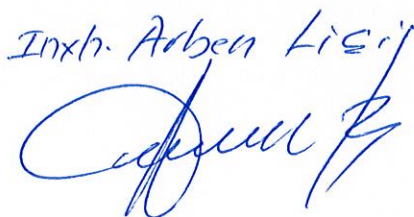 Inxh. Arben Liçi